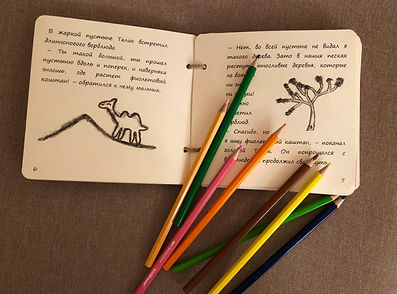 В жаркой пустыне Талик встретил
длинноногого верблюда.
– Ты такой большой, ты прошел
пустыню вдоль и поперек, и наверняка
знаешь, где растет фиолетовый
каштан! – обратился к нему мальчик.
6
– Нет, во всей пустыне не видал я
такого дерева. Зато в наших песках
растут выносливые деревья, которые
не боя
ни
ни
но
ответил
блюд.
– Спасибо, но
я ищу фиолетовый каштан, – покачал
головой Он попрощался с
продолжил свой путь.
7